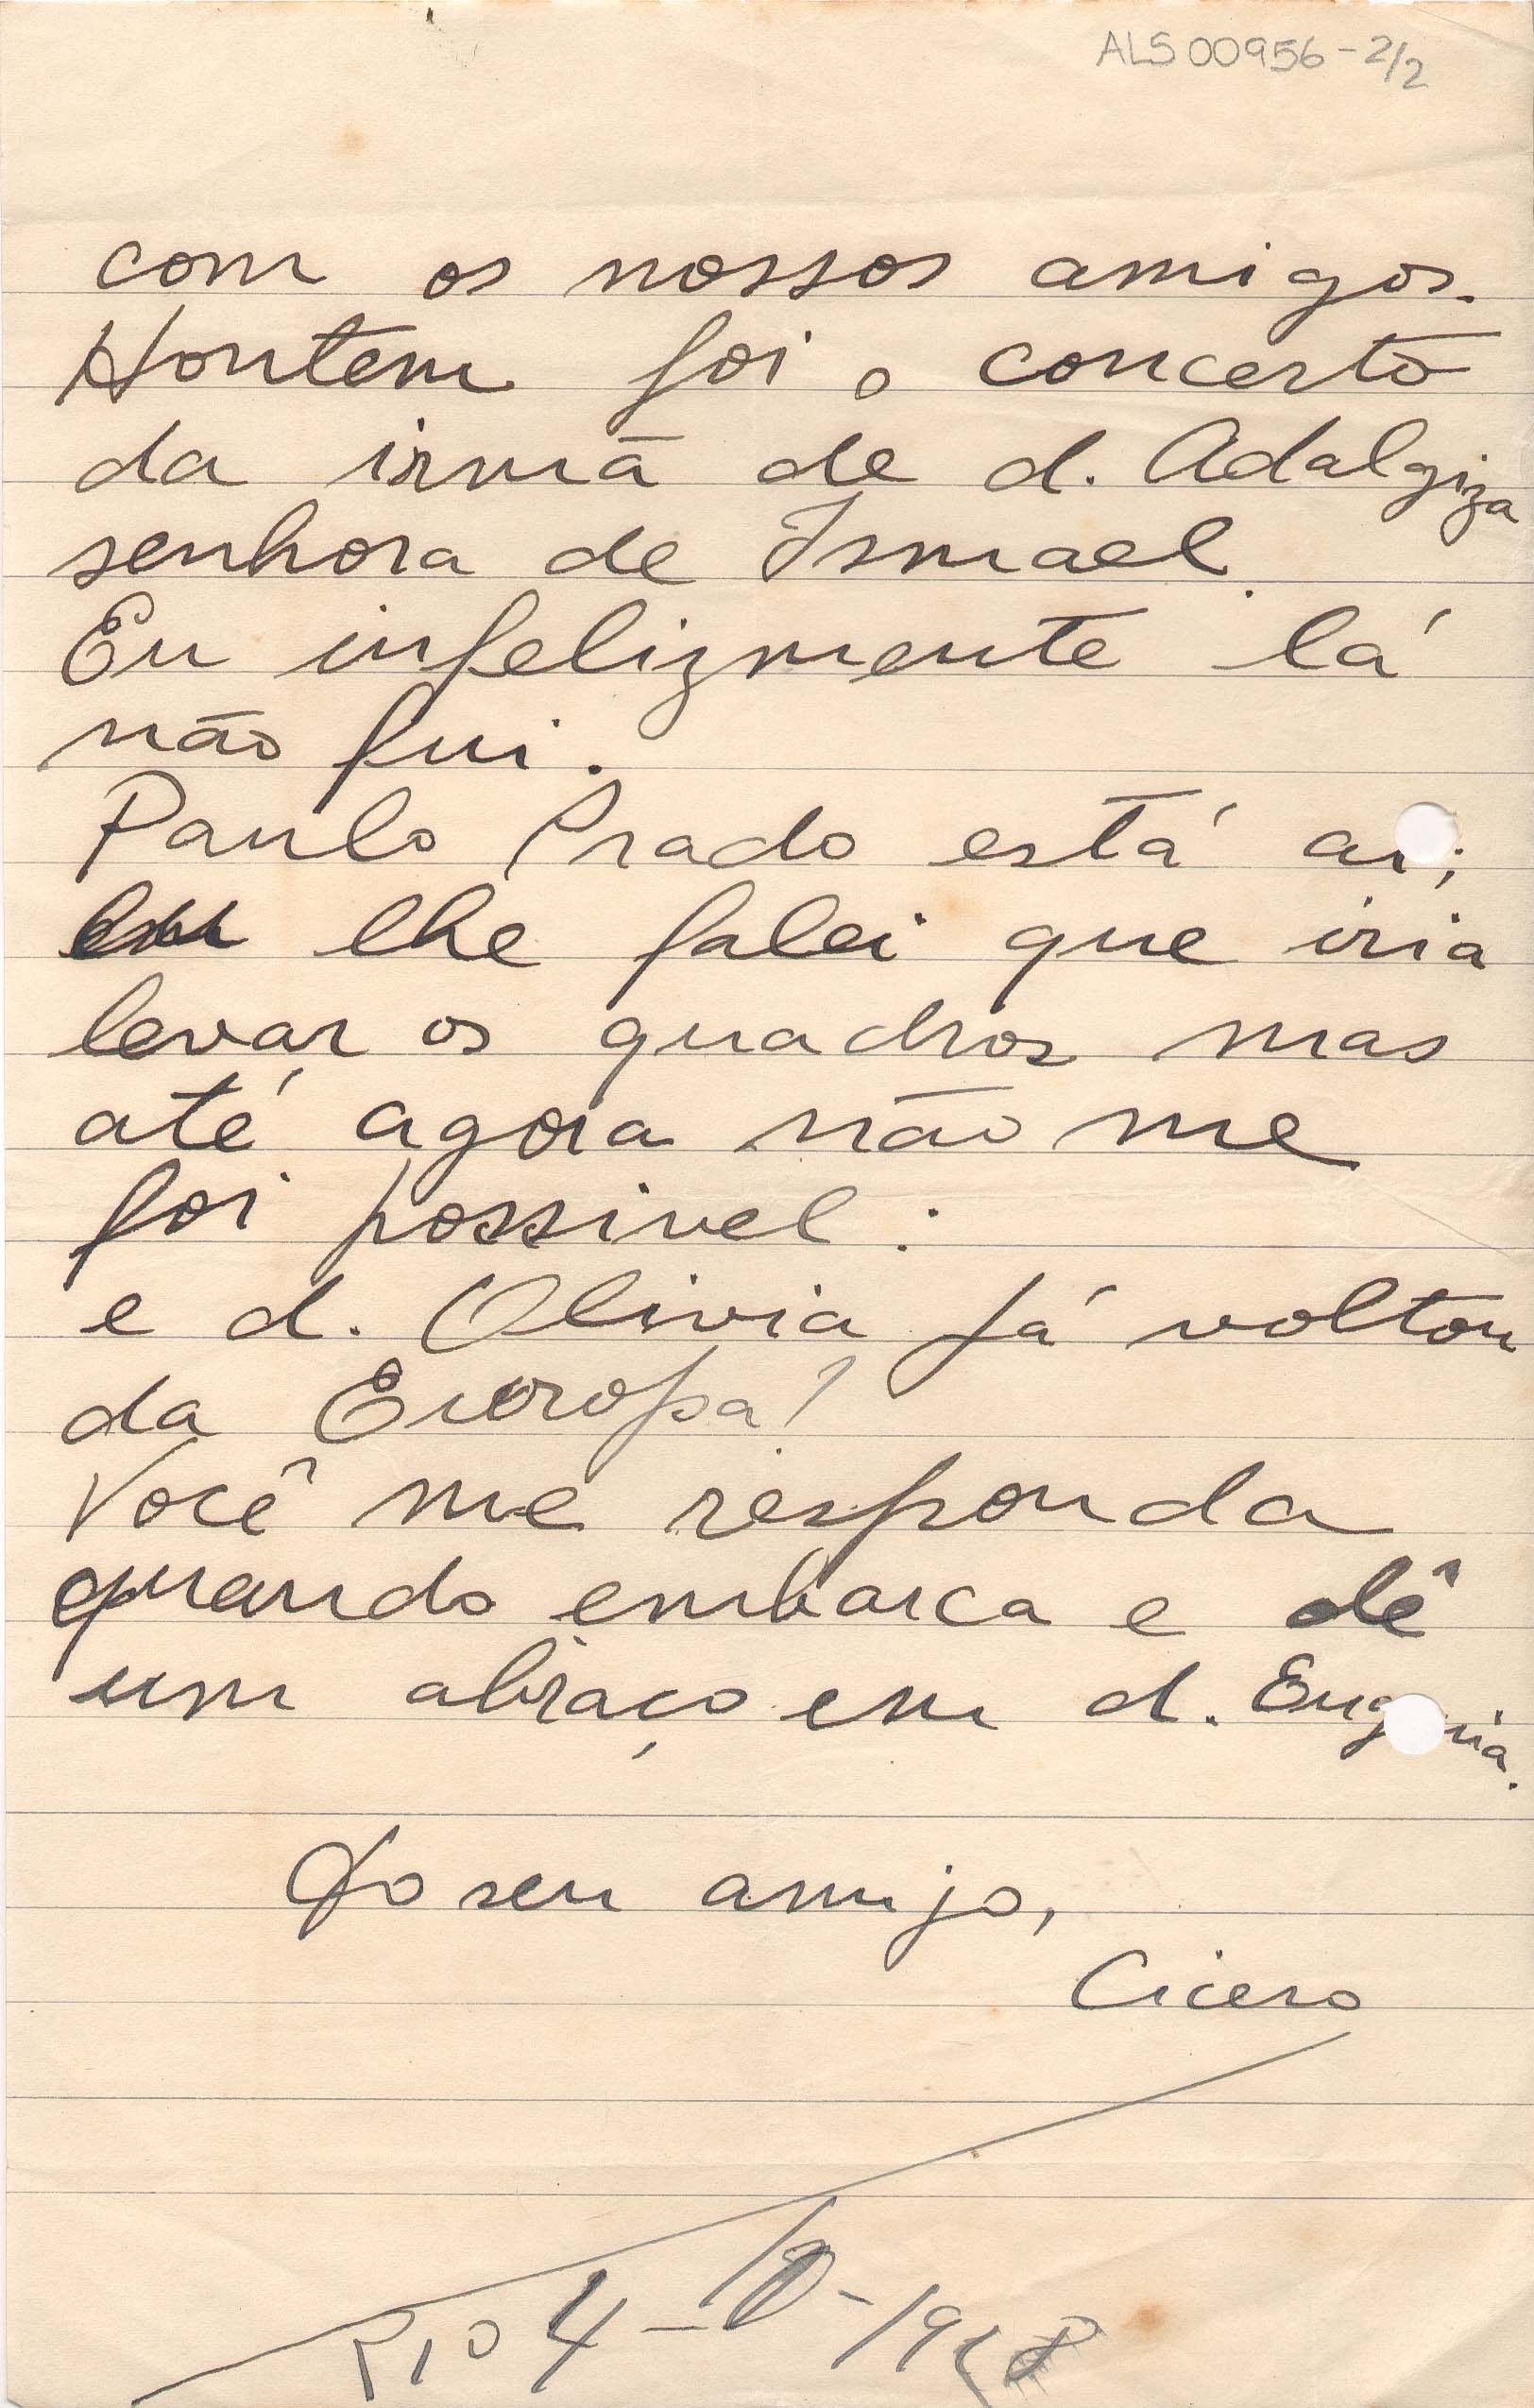 ALS 00956 - 2/2
com os nossos amigos.
Hontem foi o concerto
da irmã de d. Adalgiza
senhora de Ismael.
Eu infelizmente lá
não fui.
Paulo Prado está ai;
lhe falei que iria
levar os quadros mas
até agora não me
foi possivel:
e d. Olivia já voltou
da Europa?
Você me responda
quando embarca e dê
um abraço em d. Eugenia.
Do seu amigo,
Cicero
Rio 4-